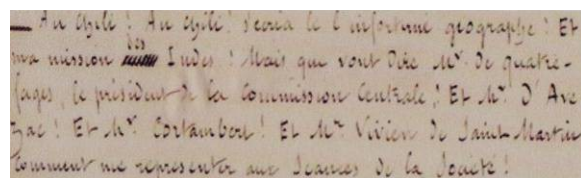 — Au Chili ! Au Chili ! s'écria le l'infortuné géographe ! Et
ma mission des Indes ! Mais que vont dire Mr. de Quatre-
fages, le président de la Commission Centrale ! Et Mr. D'Ave
zac ! Et Mr. Cortambert ! Et Mr. Vivien de Saint-Martin
Comment me représenter aux séances de la Société !